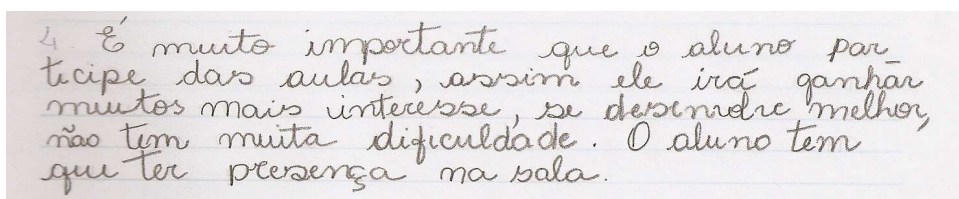 4. É muito importante que o aluno par_
ticipe das aulas, assim ele irá ganhar
muitos mais interesse, se desenvolve melhor,
não tem muita dificuldade. O aluno tem
que ter presença na sala.